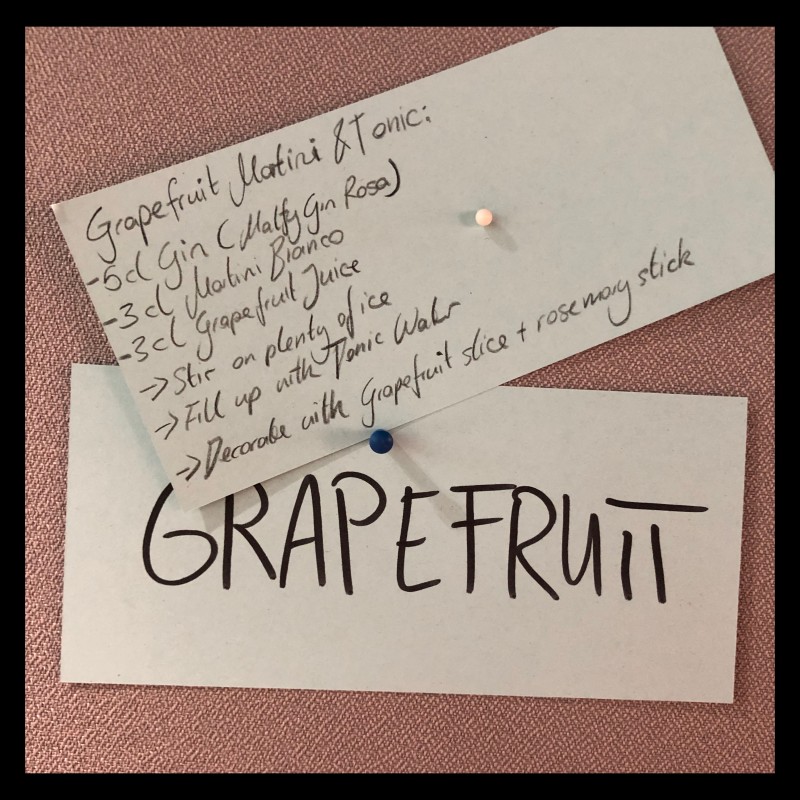 Grapefruit Martini & Tonic:
-5cl Gin (Malfy Gin Rosa)
-3cl Martini Bianco
-3cl Grapefruit Juice
→ Stir on plenty of ice
→ Fill up with Tonic Water
→ Decorate with Grapefruit slice + rosemary stick
GRAPEFRUIT